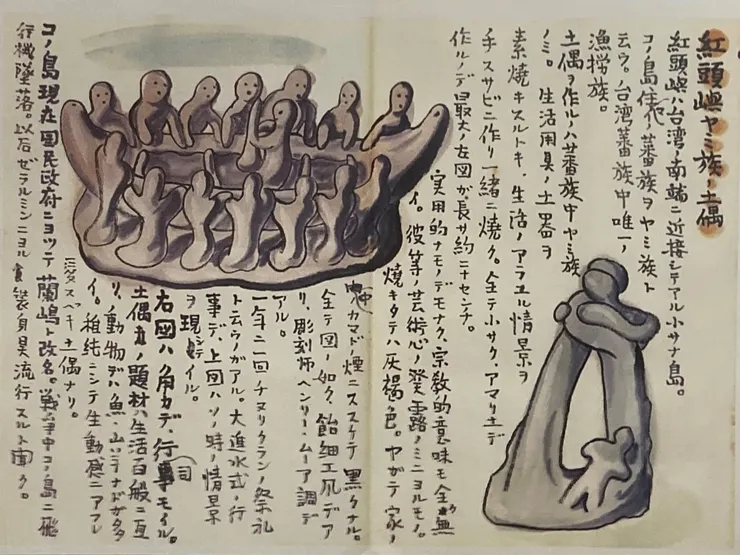 紅頭嶼ヤミ族ノ土偶
紅頭嶼ハ台湾ノ南端ニ近接シテアル小サナ島。
コノ島住ノ蕃族ヲヤミ族ト
云ウ。台湾蕃族中唯一ノ
漁撈族。
土偶ヲ作ルハ蕃族中ヤミ族
ノミ。生活用具ノ土器ヲ
素焼キスルトキ、生活ノアラユル情景ヲ
手スサビニ作リ一緒ニ焼ク。全テ小サク、アマリ土デ
作ルノデ最大ノ左図ガ長サ約二十センチ。
実用的ナモノデモナク、宗教的意味モ全然無
イ。彼等ノ芸術心ノ発露ノミニヨルモノ。
焼キタテハ灰褐色。ヤガテ家ノ
中カマドノ煙ニススケテ黒クナル。
全テ図ノ如ク飴細工風デア
リ、彫刻師ヘンリー・ムーア調デ
アル。
一年ニ一回チヌリクランノ祭礼
ト云ウノガアル。大進水式ノ行
事デ、上図ハソノ時ノ情景
ヲ現シテイル。
右図ハ角力デ、行司モイル。
土偶ノ題材ハ生活百般ニ亙
リ、動物デハ魚、山羊ナドガ多
イ。稚純ニシテ生動感ニアフレ
タスベキ土偶ナリ。
コノ島現在国民政府ニヨッテ蘭嶼ト改名。戦争中コノ島ニ飛
行機墜落。以后ゼラルミンニヨル食装身具流行スルト聞ク。